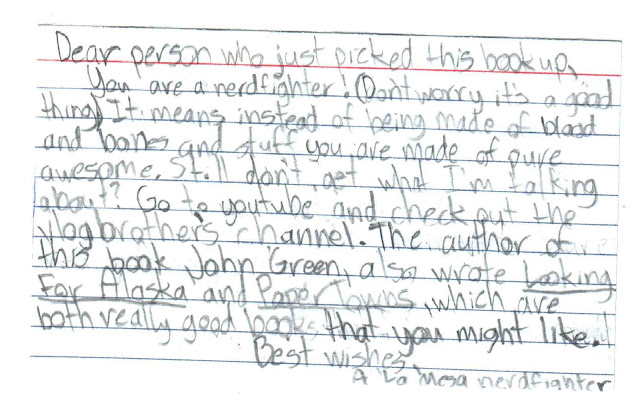 Dear person who just picked this book up,
You are a nerdfighter! (Don't worry it's a good
thing) It means instead of being made of blood
and bones and stuff you are made of pure
awesome. Still don't get what I'm talking
about? Go to youtube and check out the
vlogbrothers channel. The author of
this book John Green, also wrote Looking
For Alaska and Paper Towns, which are
both really good books that you might like.
Best wishes,
A La Mesa nerdfighter